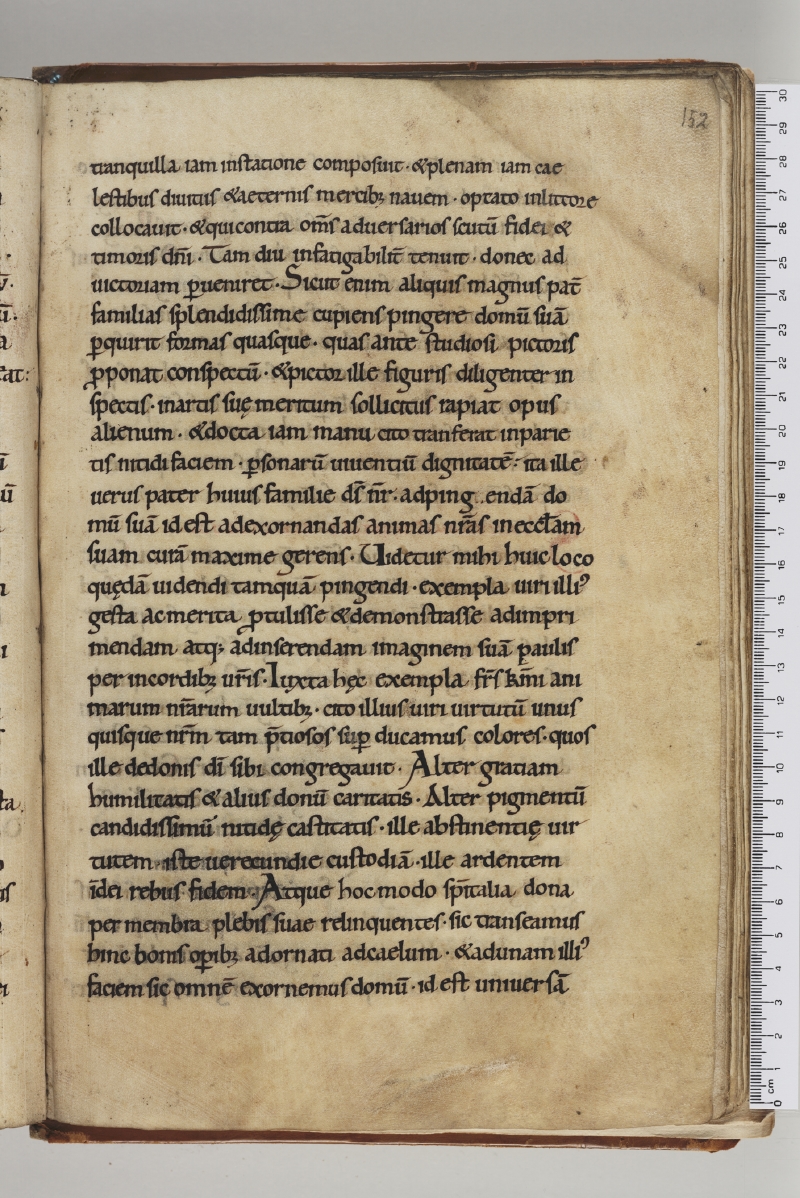 152
tranquilla iam instatione composuit · &plenam iam cae
lestibus diuitiis &aeternis mercib; nauem · optato inlittore
collocauit · &qui contra om̄s aduersarios scutū fidei &
timoris dn̄i · Tam diu infatigabilit̄ tenuit · donec ad
uictoriam ꝑueniret · Sicut enim aliquis magnus pat̄
familias splendidissime cupiens pingere domū suā
ꝑquirit formas quasque · quas ante studiosi pictoris
ꝓponat conspectū · &pictor ille figuris diligenter in
spectis · inartis suę meritum sollicitus rapiat opus
alienum · &docta iam manu cito tranferat inparie
tis nitidi faciem · ꝑsonarū uiuentiū dignitatē · ita ille
uerus pater huius familie ds̄ nr̄ · adping..endā do
mū suā id est adexornandas animas nr̄as in eccl̄am
suam curā maxime gerens · Uidetur mihi huic loco
quędā uidendi tamquā pingendi · exempla uiri illiꝰ
gesta ac merita ꝓtulisse &demonstrasse adimpri
mendam atq; adinserendam imaginem suā paulis
per incordib; ur̄is · Iuxta hęc exempla fr̄s km̄i ani
marum nr̄arum uultib; · cito illius uiri uirtutū unus
quisque nr̄m tam p̄tiosos suꝑ ducamus colores · quos
ille dedonis dī sibi congregauit · Alter gratiam
humilitatis &alius donū caritatis · Alter pigmentū
candidissimū nitidę castitatis · ille abstinentię uir
tutem · iste uerecundie custodiā · ille ardentem
īdei rebus fidem · Atque hoc modo sp̄italia dona
per membra plebis suae relinquentes · sic transeamus
hinc bonis oꝑib; adornati adcaelum · &adunam illiꝰ
faciem sic omnē exornemus domū · id est uniuersā